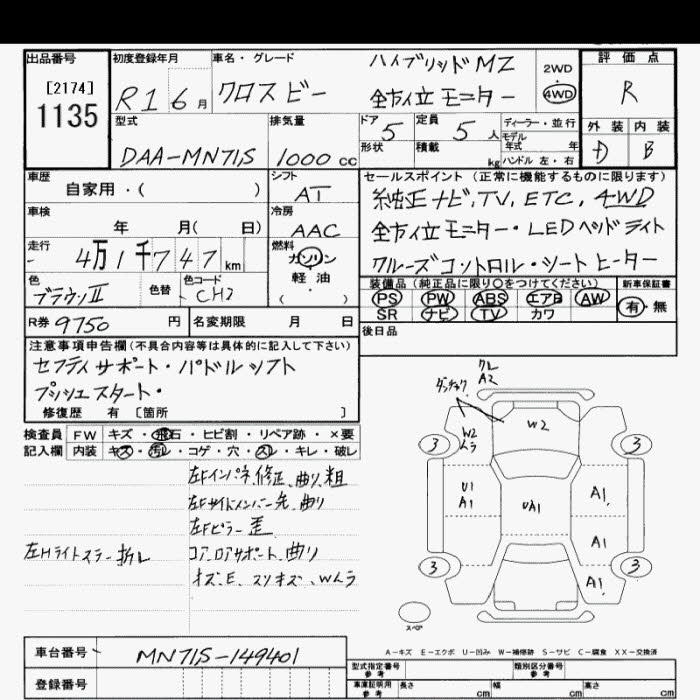 出品番号
[2174]
1135
初度登録年月
R1 6 月
車名・グレード
クロスビー
ハイブリッドMZ
全方位モニター
2WD
4WD
評価点
R
外装 内装
D B
型式
DAA-MN71S
排気量
1000 cc
ドア 5
定員 5 人
形状
積載 kg
ディーラー・並行
モデル
年式 年
ハンドル 左・右
車歴
自家用・( )
シフト
AT
車検
年 月( 日)
冷房
AAC
走行
4万1千747 km
燃料
ガソリン
軽油
( )
色
ブラウンII
色替
色コード
CH2
R券 9750 円
名変期限 月 日
セールスポイント(正常に機能するものに限ります)
純正ナビ,TV,ETC,4WD
全方位モニター・LEDヘッドライト
クルーズコントロール・シートヒーター
装備品(純正品に限り○をつけてください)
PS PW ABS エアB AW
SR ナビ TV カワ
新車保証書
有・無
後日品
注意事項申告欄(不具合内容等は具体的に記入して下さい)
セフティサポート・パドルシフト
プッシュスタート・
修復歴 有 〔箇所 〕
検査員 FW キズ・飛石・ヒビ割・リペア跡・×要
記入欄 内装 キズ・汚レ・コゲ・穴・スレ・キレ・破レ
左Fインパネ修正、曲り、粗
左Fサイドメンバー先、曲り
左Fピラー歪
左Hライトステー折レ
コアロアサポート、曲り
オズ、E、スリオズ、Wムラ
クレ
A2
W2
W2
ムラ
3
3
U1
A1
UA1
A1
A1
3
3
A1
スペア
A-キズ E-エクボ U-凹み W-補修跡 S-サビ C-腐食 XX-交換済
車台番号
MN71S-149401
登録番号
型式指定番号
参考
類別区分番号
参考
車庫証明用
参考
長さ cm
幅 cm
高さ cm